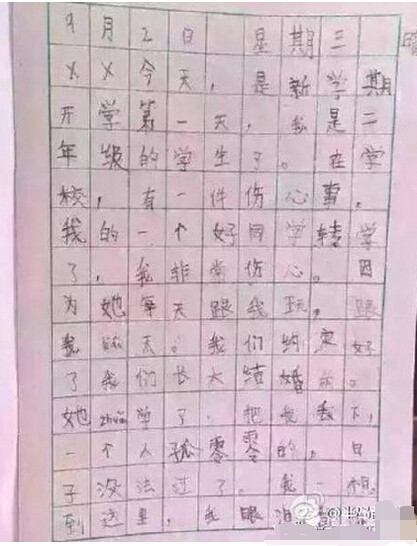 9月2日 星期三
XX今天，是新学期
开学第一天，我是二
年级的学生了。在学
校，有一件伤心事，
我的一个好同学转学
了，我非常伤心。因
为她每天跟我玩，跟
我天。我们约定好
了我们长大结婚的。
她zhuǎn学了，把我下，
一个人孤零零的，日
子没法过了。我一想
到这里，我眼泪